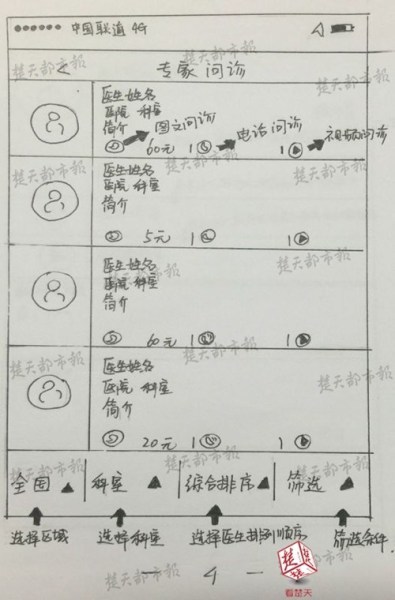 中国联通 4G
< 专家问诊
医生姓名
医院 科室
简介 图文问诊 电话问诊 视频问诊
60元 1 1
医生姓名
医院 科室
简介
5元 1 1
医生姓名
医院 科室
简介
60元 1 1
医生姓名
医院 科室
简介
20元 1 1
全国 科室 综合排序 筛选
选择区域 选择科室 选择医生排列顺序 筛选条件
— 4 —
看楚天
楚天都市报
楚天都市报
楚天都市报
楚天都市报
楚天都市报
楚天都市报
楚天都市报
楚天都市报
楚天都市报
楚天都市报
楚天都市报
楚天都市报